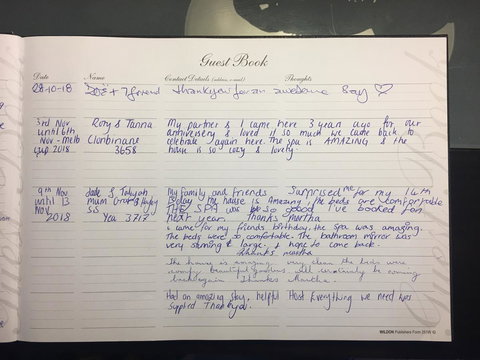 Guest Book
Date Name Contact Details (address, e-mail) Thoughts
28-10-18 + 7 friend thankyou for an awesome Stay ♡
3rd Nov Rory & Tanna My partner & I came here 3 years ago for our
until 6th anniversery & loved it so much we came back to
Nov - melb Clonbinane celebrate again here. The spa is AMAZING & the
cup 2018 3658 house is so cozy & lovely.
9th Nov Jade & My family and friends Surprised me for my 14th
until 13 mum Bday the house is Amazing, the beds are comfortable
Nov sis THE SPA was so good I've booked for
2018 Yea 3717 next year. thanks martha
I came for my friends birthday, the spa was amazing.
The beds were so comfortable. The bathroom mirror was
very stunning & large. I hope to come back.
thanks martha
The house is amazing very clean the beds were
comfy beautiful gardens. will certainly be coming
back again Thankes Martha.
Had an amazing stay, helpful Host Everything we need was
Supplied Thankyou.
WILDON Publishers Form 251W ©